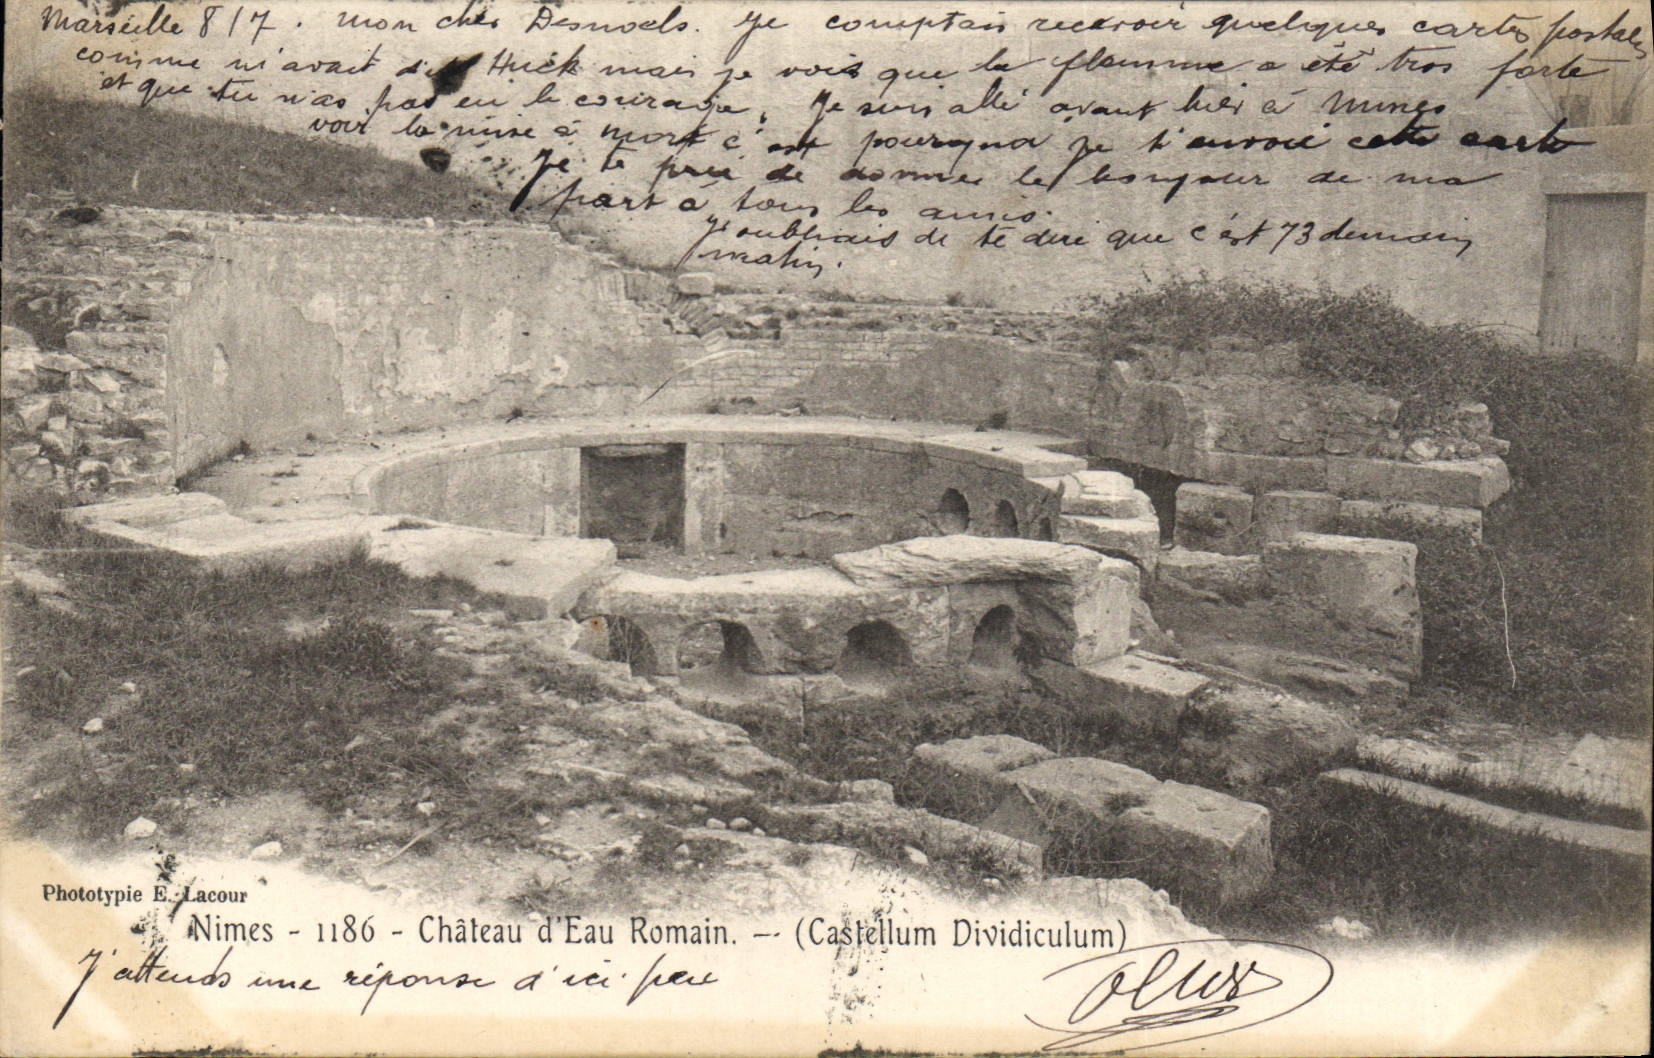 Marseille 8/7. mon cher Desnoels. Je comptais recevoir quelques cartes postales
comme m'avait dit Huck mais je vois que la flemme a été tros forte
et que tu n'as pas eu le courage. Je suis allé avant hier à Nimes
voir la mise à mort c'est pourquoi je t'envoie cette carte
Je te prie de donner le bonjour de ma
part à tous les amis.
Je oubliais de te dire que c'est 73 demain
matin.
Phototypie E. Lacour
Nimes - 1186 - Château d'Eau Romain. - (Castellum Dividiculum)
J'attends une réponse d'ici peu